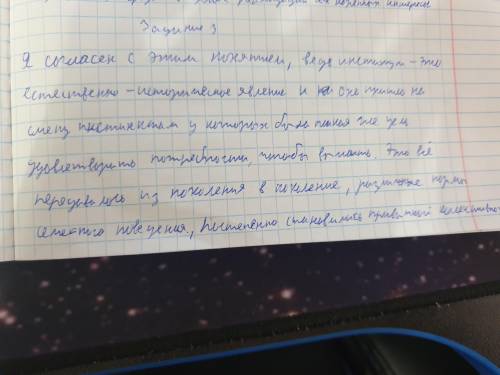 для
интересы
Задание 3
Я согласен с этим понятием, ведь институт - это
естественно - историческое явление и оно пришло на
смену инстинктам у которых была такая же цель
удовлетворить потребности, чтобы выжить. Это всё
передавалось из поколения в поколение, различные нормы
семейного поведения, постепенно становились привычкой